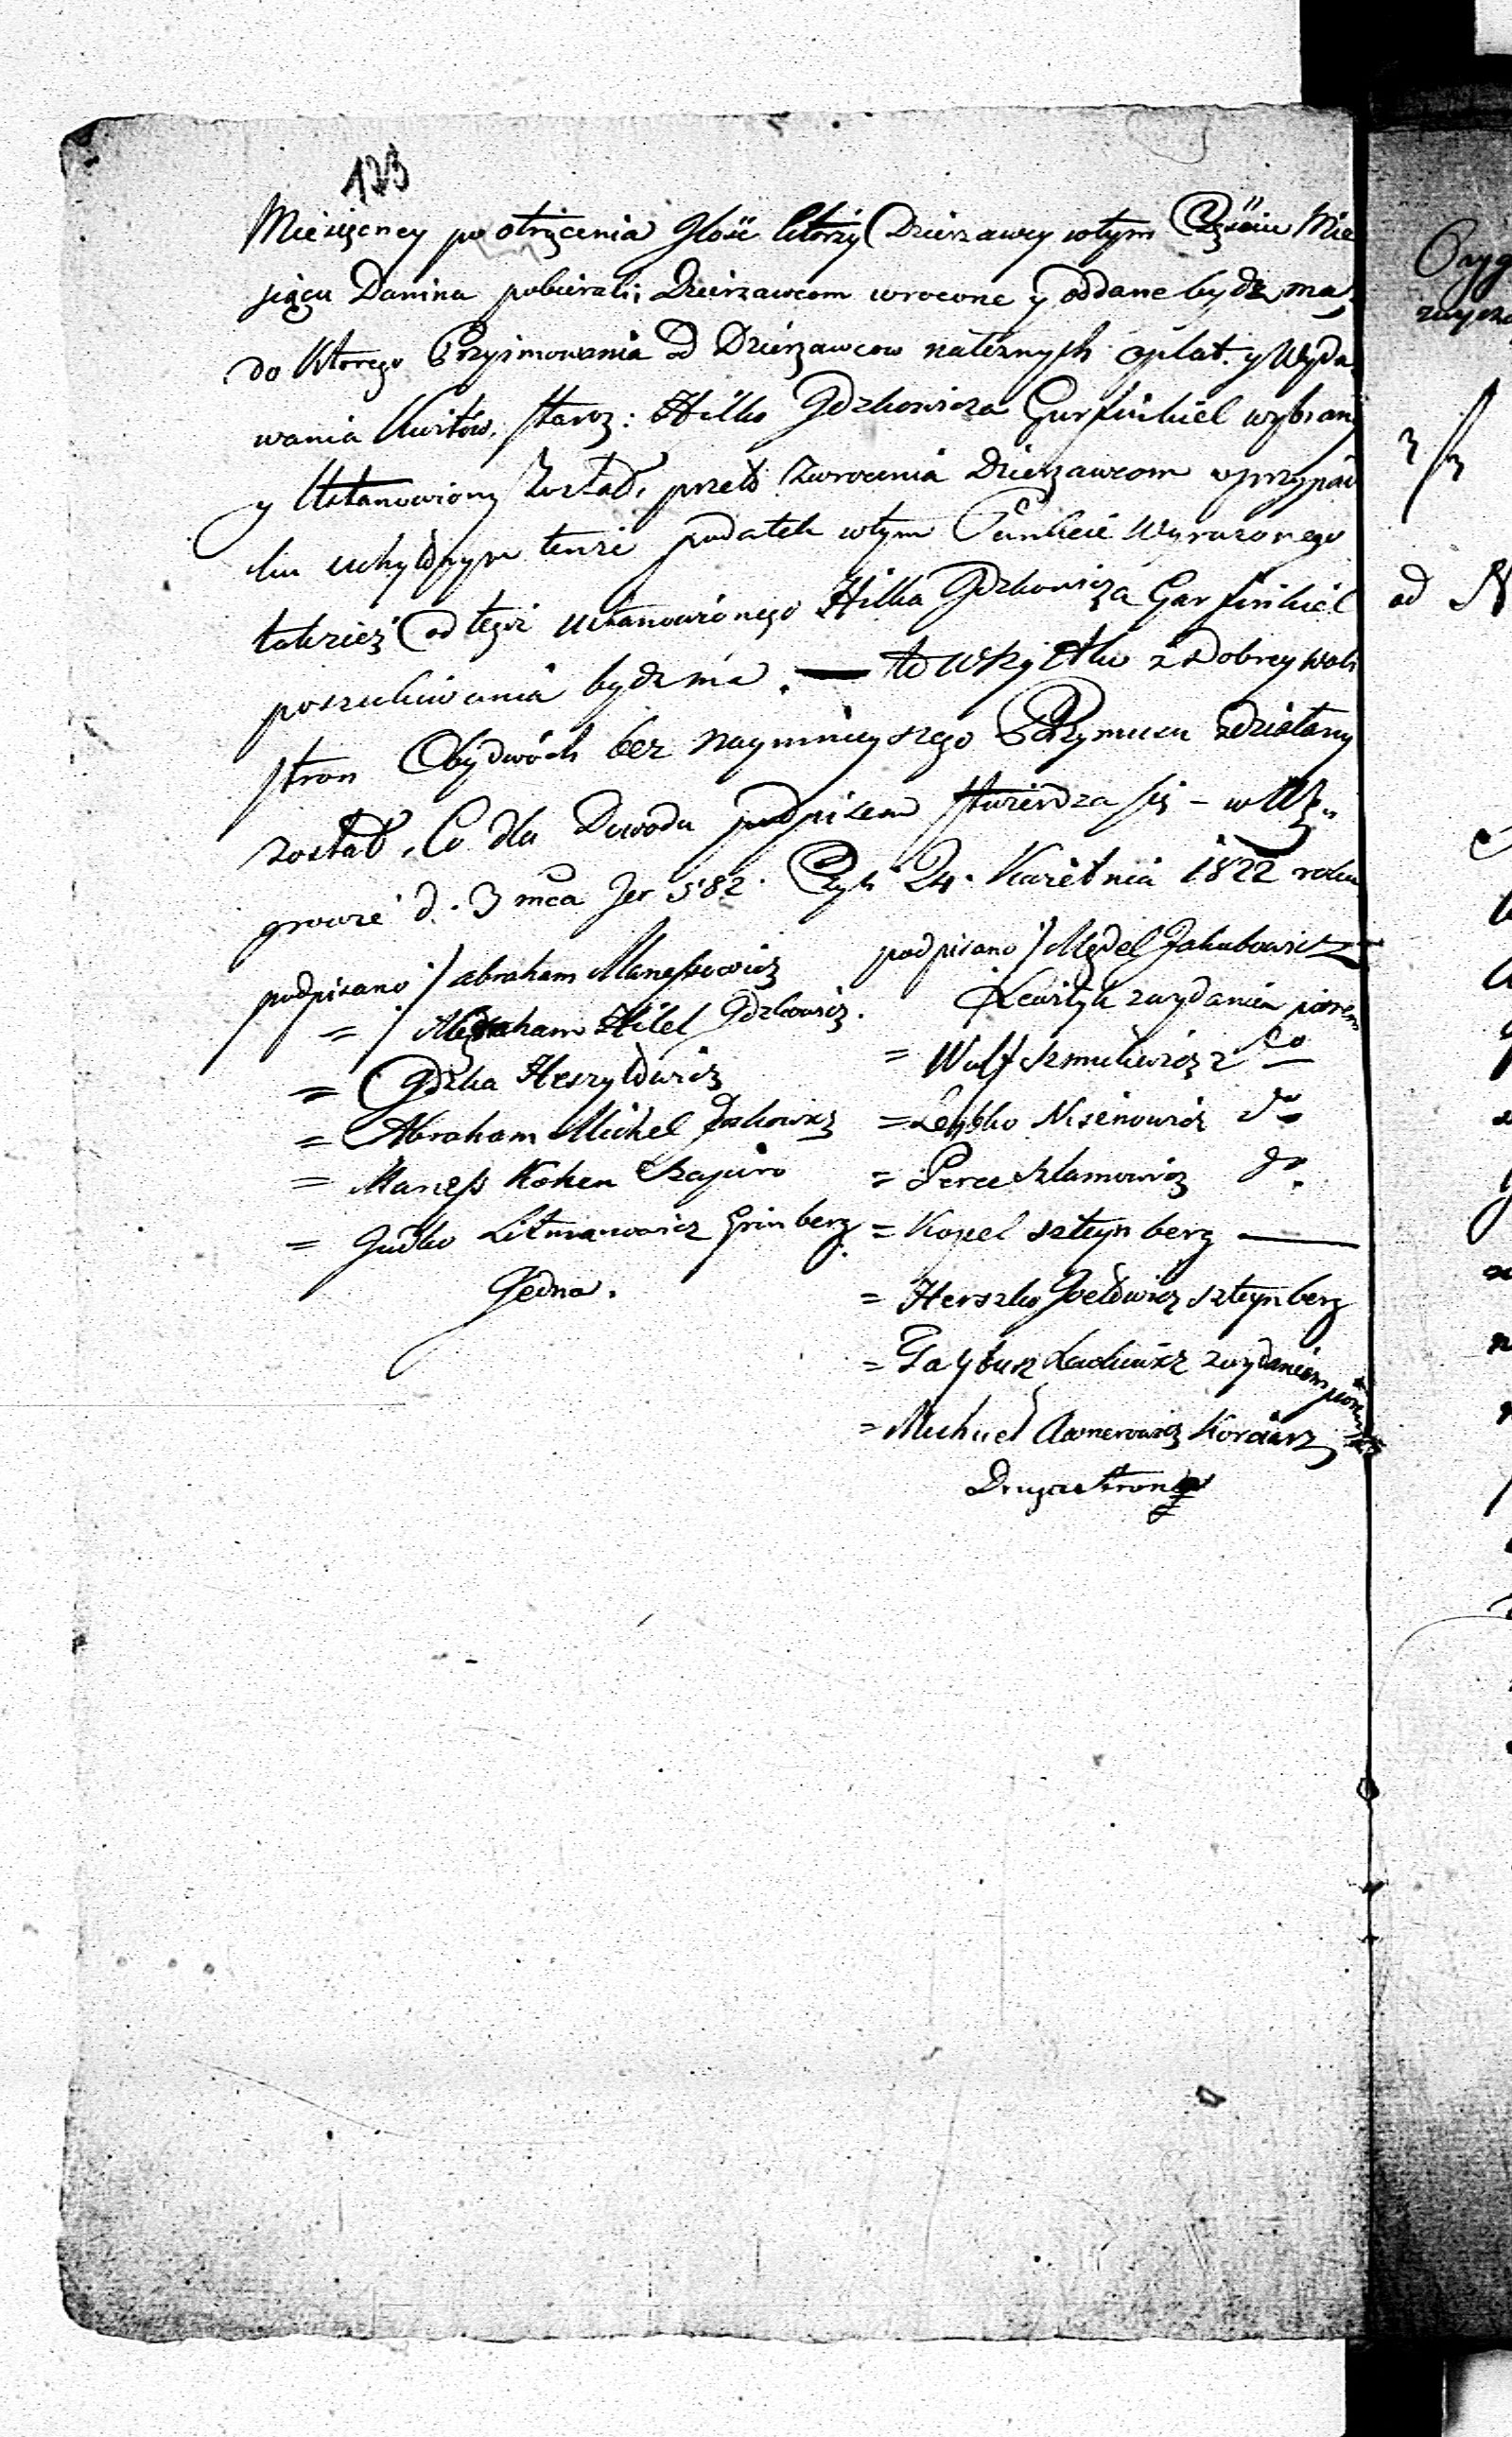 123
Miesięczney po otrącenia Ilość którzy Dzierzawcy wtym Częśćiu Mie
siącu Danina pobierali, Dzierzawcom wrocone y oddane bydz ma,
do Ktorego Przyimowania od Dzierzawcow należnych opłat y Wyda-
wania Kwitów, Staroz: Hilko Gdzkowicza Garfinkiel wybrany
y Ustanowiony został, przeto zwrocenia Dzierzawcom wprzypad
ku uchylonym tenże podatek wtym Punkcie wyrazonego
takzież od tegoż ustanowionego Hilka Gdzkowicza Garfinkiel
poszukiwania bydz ma. — to wszystko z Dobrey woli
stron Obydwóch bez naymnieyszego Przymusu zdziałany
został, Co dla Dowodu podpisem stwierdza się - w Wę-
growie d. 3 mca Jer 582. Czyli 24. Kwietnia 1822 roku
podpisano /) Abraham Manessowicz
= /) Abraham Hilel Gdzkowicz.
= Gdzka Heszylowicz
= Abraham Michel Joskowicz
= Maness Kohen Szapiro
= Judko Litmanowicz Grinberg
Jedna.
podpisano /) Mendel Jakubowicz
zwydaniem piórem
= Wulf Szmulewicz do
= Leybko Nisenowicz do
= Perec Szlamowicz do
= Kopel Szteynberg —
= Herszko Joelowicz Szteynberg
= Faytusz zwydaniem
= Michuel Kórciarz
Druga strona